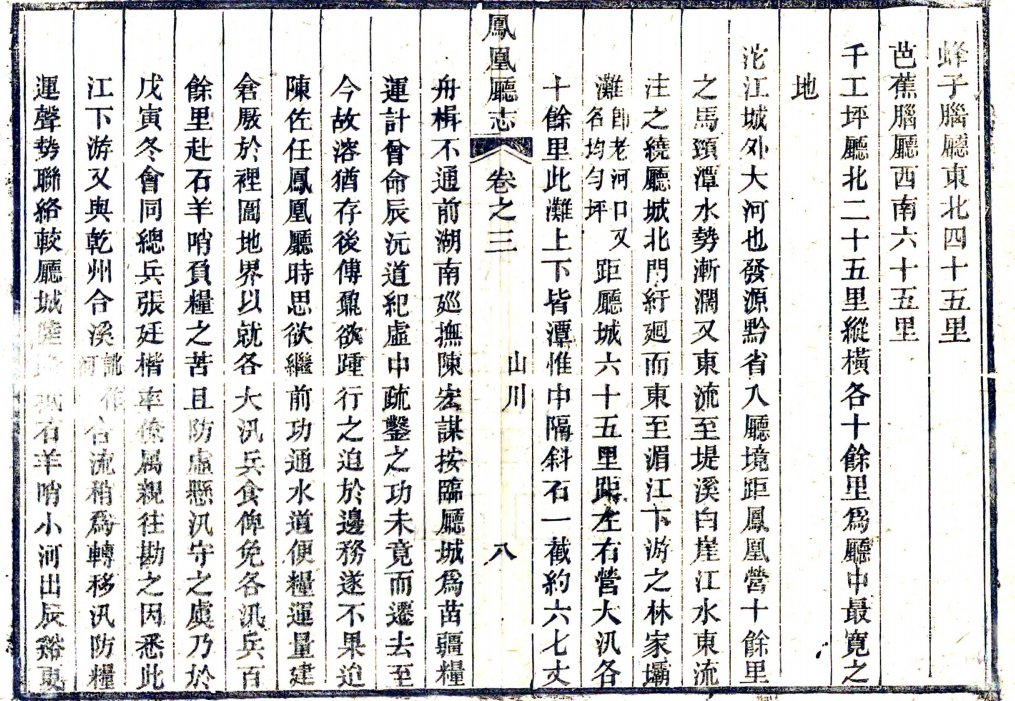 蜂子腦廳東北四十五里
芭蕉腦廳西南六十五里
千工坪廳北二十五里縱橫各十餘里爲廳中最寬之
地
沱江城外大河也發源黔省入廳境距鳳凰營十餘里
之馬頸潭水勢漸濶又東流至堤溪白崖江水東流
注之繞廳城北門紆廻而東至湄江下游之林家壩
灘卽老河口又名均勻坪距廳城六十五里距左右營大汛各
十餘里此灘上下皆潭惟中隔斜石一截約六七丈
鳳凰廳志 卷之三 山川 八
舟楫不通前湖南廵撫陳宏謀按臨廳城爲苗疆糧
運計曾命辰沅道紀虛中疏鑿之功未竟而遷去至
今故溶猶存後傅鼐欲踵行之迫於邊務遂不果迨
陳佐任鳳凰廳時思欲繼前功通水道便糧運量建
倉厫於裡圖地界以就各大汛兵食俾免各汛兵百
餘里赴石羊哨負糧之苦且防虛懸汛守之虞乃於
戊寅冬會同總兵張廷楷率僚属親往勘之因悉此
江下游又與乾州合溪訛作河合流稍爲轉移汛防糧
運聲勢聯絡較廳城陸石羊哨小河出辰谿更